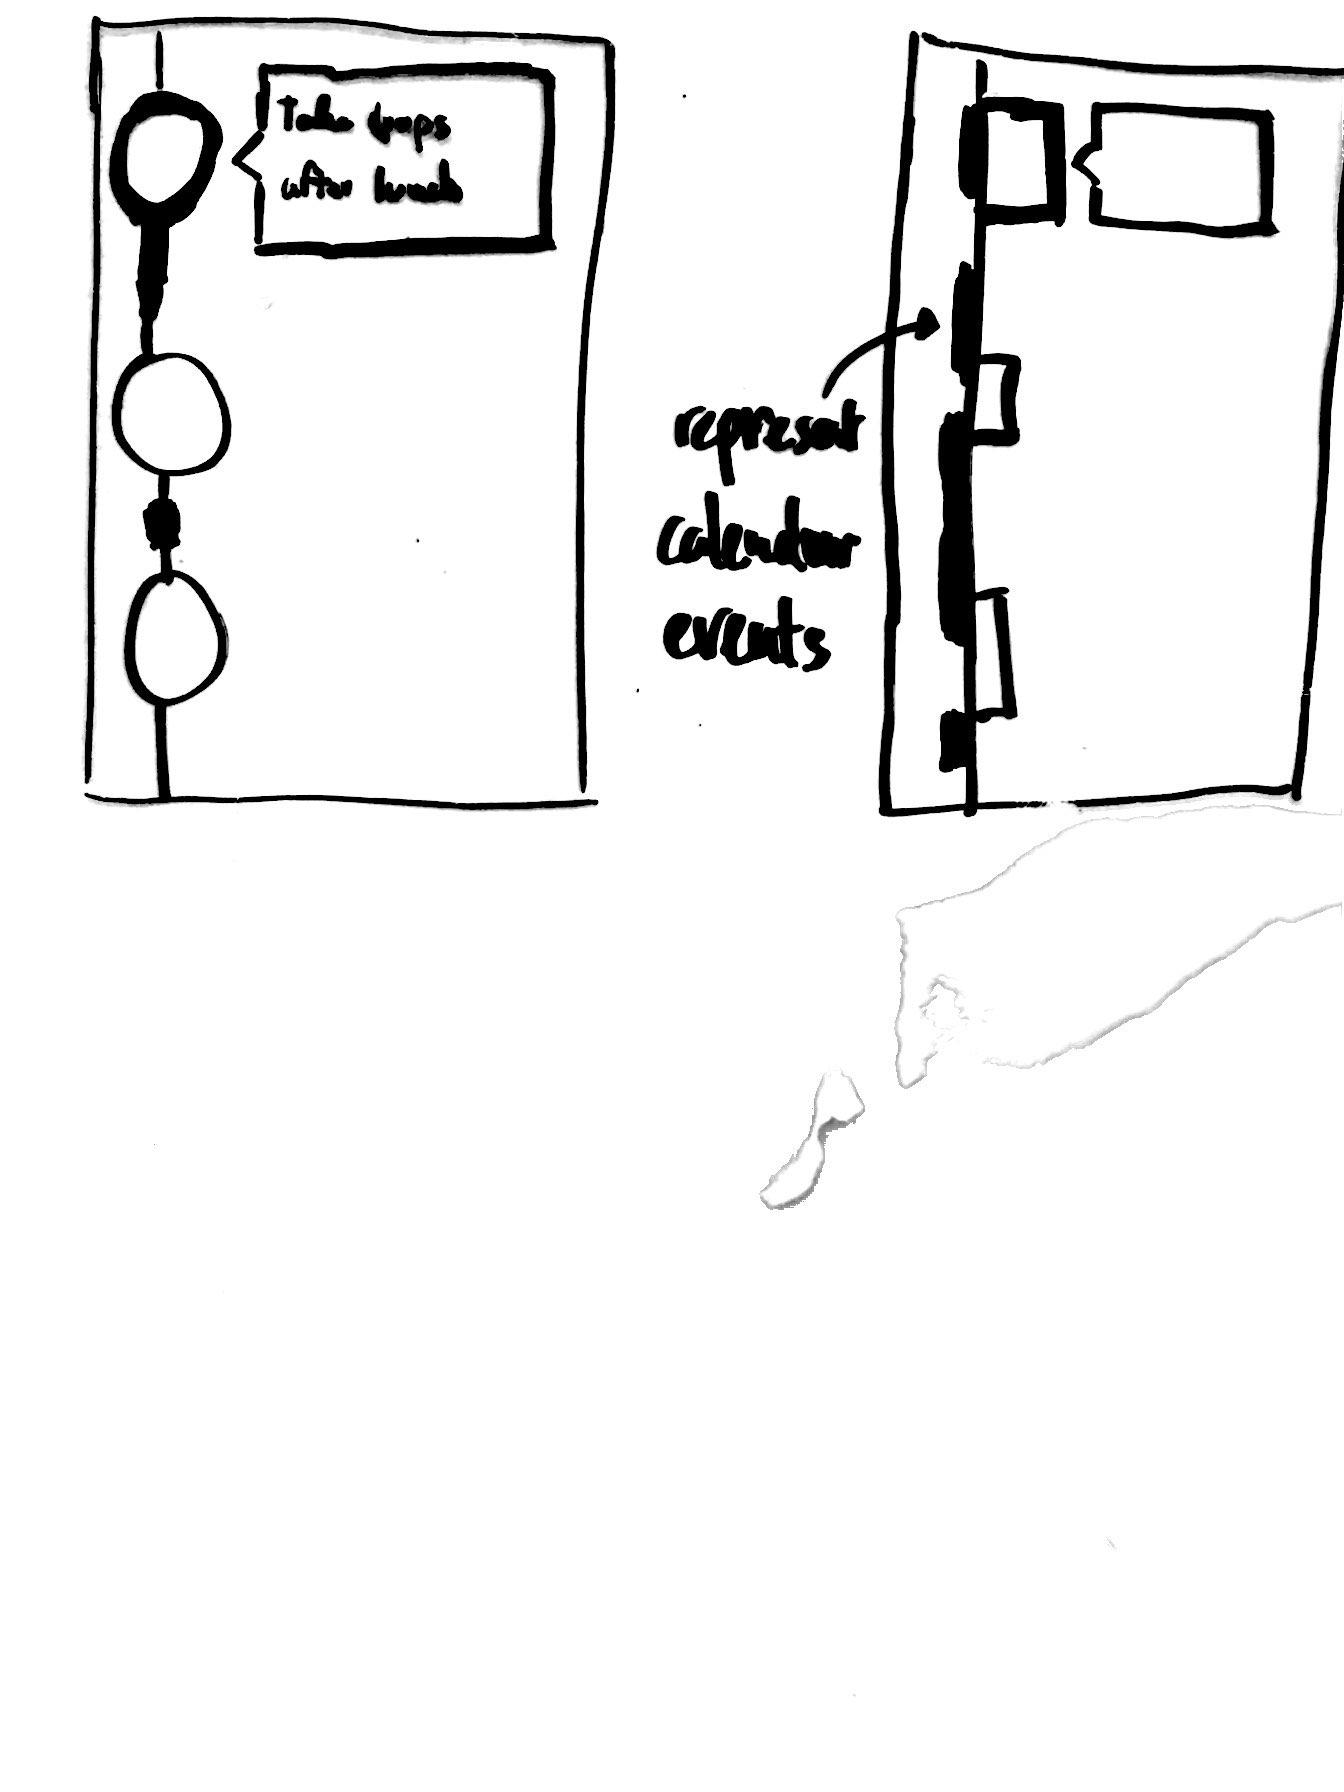 Take drops
after lunch
represent
calendar
events